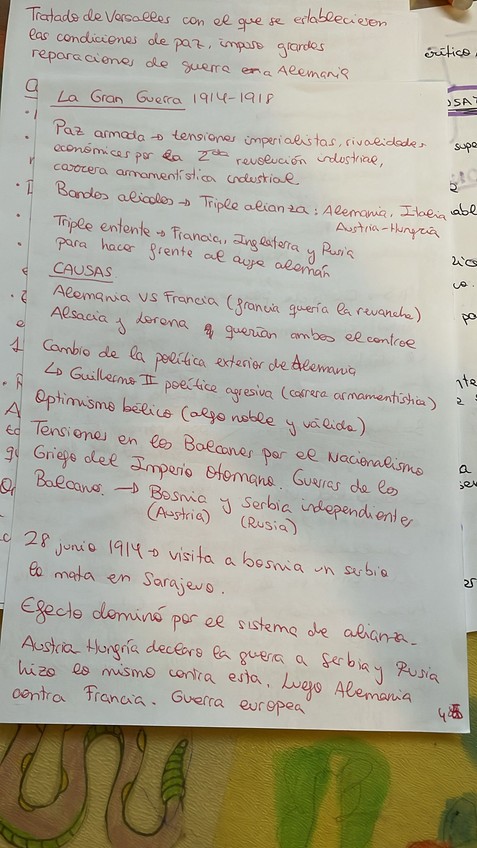 Tratado de Versalles con el que se establecieron
las condiciones de paz, impuso grandes
reparaciones de guerra a Alemania
La Gran Guerra 1914-1918
Paz armada → tensiones imperialistas, rivalidades
económicas por la 2da revolución industrial,
carrera armamentística industrial
Bandos aliados → Triple alianza: Alemania, Italia
Austria-Hungría
Triple entente → Francia, Inglaterra y Rusia
para hacer frente al auje alemán
CAUSAS
Alemania VS Francia (francia quería la revancha)
Alsacia y Lorena querían ambos el control
Cambio de la política exterior de Alemania
↳ Guillermo II política agresiva (carrera armamentística)
Optimismo bélico (algo noble y válido)
Tensiones en los Balcanes por el Nacionalismo
Griego del Imperio Otomano. Guerras de los
Balcanes. → Bosnia y Serbia independientes
(Austria) (Rusia)
28 junio 1914 → visita a bosnia un serbio
lo mata en Sarajevo.
Efecto dominó por el sistema de alianza.
Austria Hungría declaro la guerra a Serbia y Rusia
hizo lo mismo contra esta. Luego Alemania
contra Francia. Guerra europea
crítico,
supe